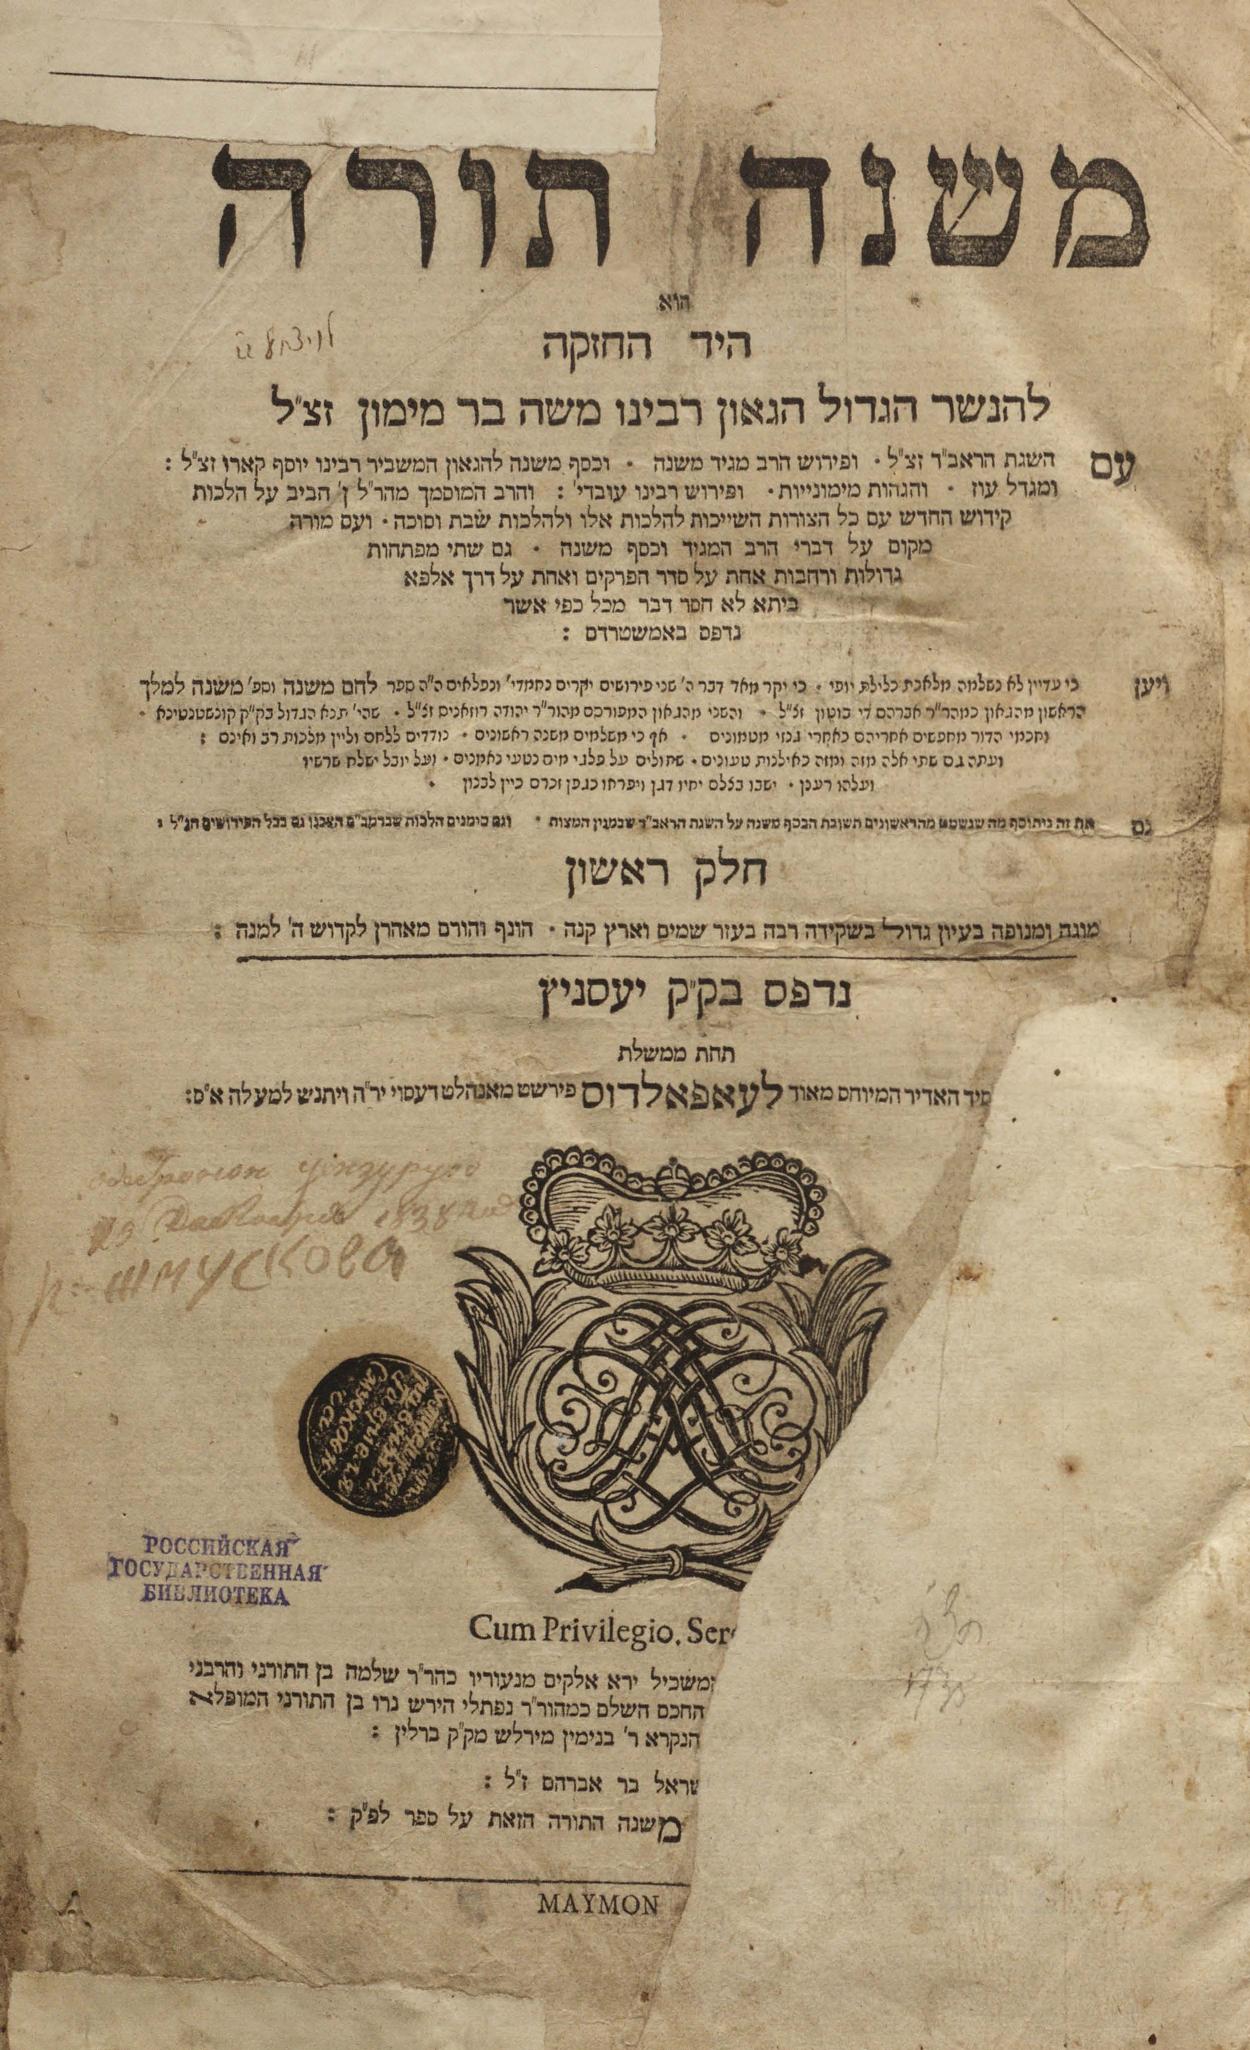 משנה תורה
הוא
היד החזקה
להנשר הגדול הגאון רבינו משה בר מימון זצ״ל
עם השגת הראב״ד זצ״ל · ופירוש הרב מגיד משנה · וכסף משנה להגאון המשביר רבינו יוסף קארו זצ״ל :
ומגדל עוז · והגהות מימונייות · ופירוש רבינו עובדי׳ : והרב המוסמך מהר״ל ן׳ חביב על הלכות
קידוש החדש עם כל הצורות השייכות להלכות אלו ולהלכות שבת וסוכה · ועם מורה
מקום על דברי הרב המגיד וכסף משנה · גם שתי מפתחות
גדולות ורחבות אחת על סדר הפרקים ואחת על דרך אלפא
ביתא לא חסר דבר מכל כפי אשר
נדפס באמשטרדם :
ויען כי עדיין לא נשלמה מלאכת כלילת יופי · כי יקר מאד דבר ה׳ שני פירושים יקרים נחמדי׳ ונפלאים ה״ה ספר לחם משנה וספ׳ משנה למלך
הראשון מהגאון כמהר״ר אברהם די בוטון זצ״ל · והשני מהגאון המפורסם מהור״ר יהודה רוזאניס זצ״ל · שהי׳ תנא הגדול בק״ק קונשטנטינא ·
וחכמי הדור מחפשים אחריהם כאחרי גנזי מטמונים · אף כי משלמים משנה ראשונים · נודדים ללחם וליין מלכות רב ואינם :
ועתה גם שתי אלה מזה ומזה כאילנות טעונים · שתולים על פלגי מים כנטעי נאמנים · ועל יובל ישלח שרשיו
ועלהו רענן · ישבו בצלם יחיו דגן ויפרחו כגפן זכרם כיין לבנון ·
גם את זה ניתוסף מה שנשמט מהראשונים תשובת הכסף משנה על השגת הראב״ד שבמנין המצות · וגם סימנים הלכות שברמב״ם הצבנו גם בכל הפירושים הנ״ל :
חלק ראשון
מוגה ומנופה בעיון גדול בשקידה רבה בעזר שמים וארץ קנה · הונף והורם מאהרן לקדוש ה׳ למנה :
נדפס בק״ק יעסניץ
תחת ממשלת
סיד האדיר המיוחס מאוד לעאפאלדוס פירשט מאנהלט דעסוי יר״ה ויתנש למעלה א״ס:
1838
Шмускова
РОССИЙСКАЯ
ГОСУДАРСТВЕННАЯ
БИБЛИОТЕКА
Cum Privilegio. Ser
משכיל ירא אלקים מנעוריו כהר״ר שלמה בן התורני והרבני
החכם השלם כמהור״ר נפתלי הירש נרו בן התורני המופלא
הנקרא ר׳ בנימין מירלש מק״ק ברלין :
שראל בר אברהם ז״ל :
משנה התורה הזאת על ספר לפ״ק :
MAYMON